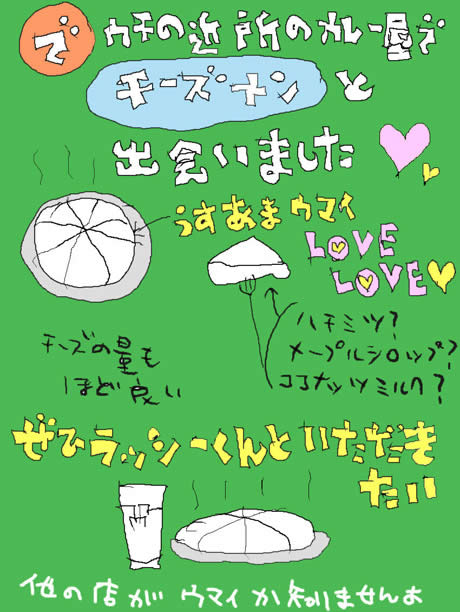 で ウチの近所のカレー屋で
チーズナンと
出会いました
うすあまウマイ
LOVE
LOVE
ハチミツ?
メープルシロップ?
ココナッツミルク?
チーズの量も
ほど良い
ぜひラッシーくんといただき
たい
他の店がウマイか知りませんよ